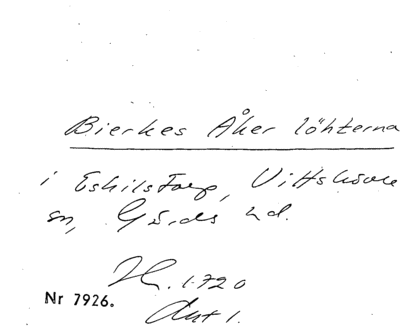 Bierkes Åker löhterna
i Eskilstorp, Vittskövle
sn, Gärds hd.
H. 1.720
Nr 7926.
Akt 1.